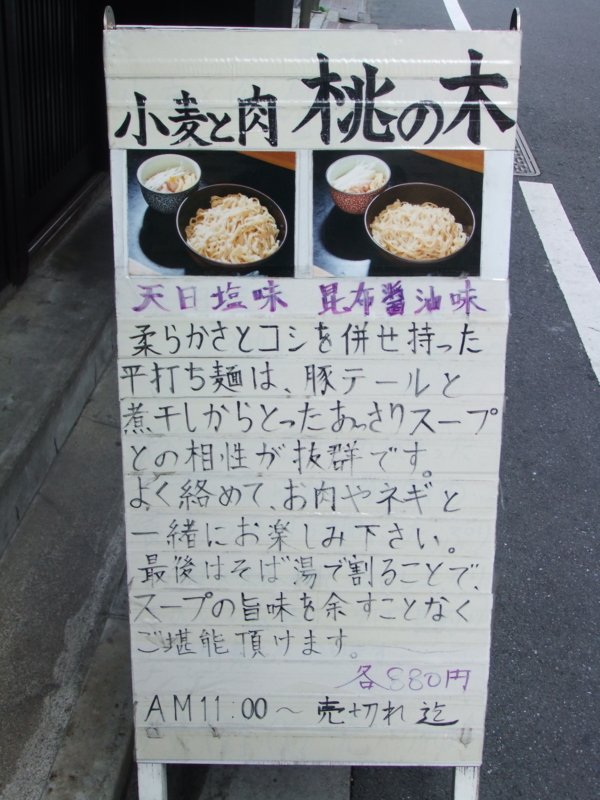 小麦と肉 桃の木
天日塩味 昆布醤油味
柔らかさとコシを併せ持った
平打ち麺は、豚テールと
煮干しからとったあっさりスープ
との相性が抜群です。
よく絡めて、お肉やネギと
一緒にお楽しみ下さい。
最後はそば湯で割ることで、
スープの旨味を余すことなく
ご堪能頂けます。
各880円
AM11:00〜売切れ迄